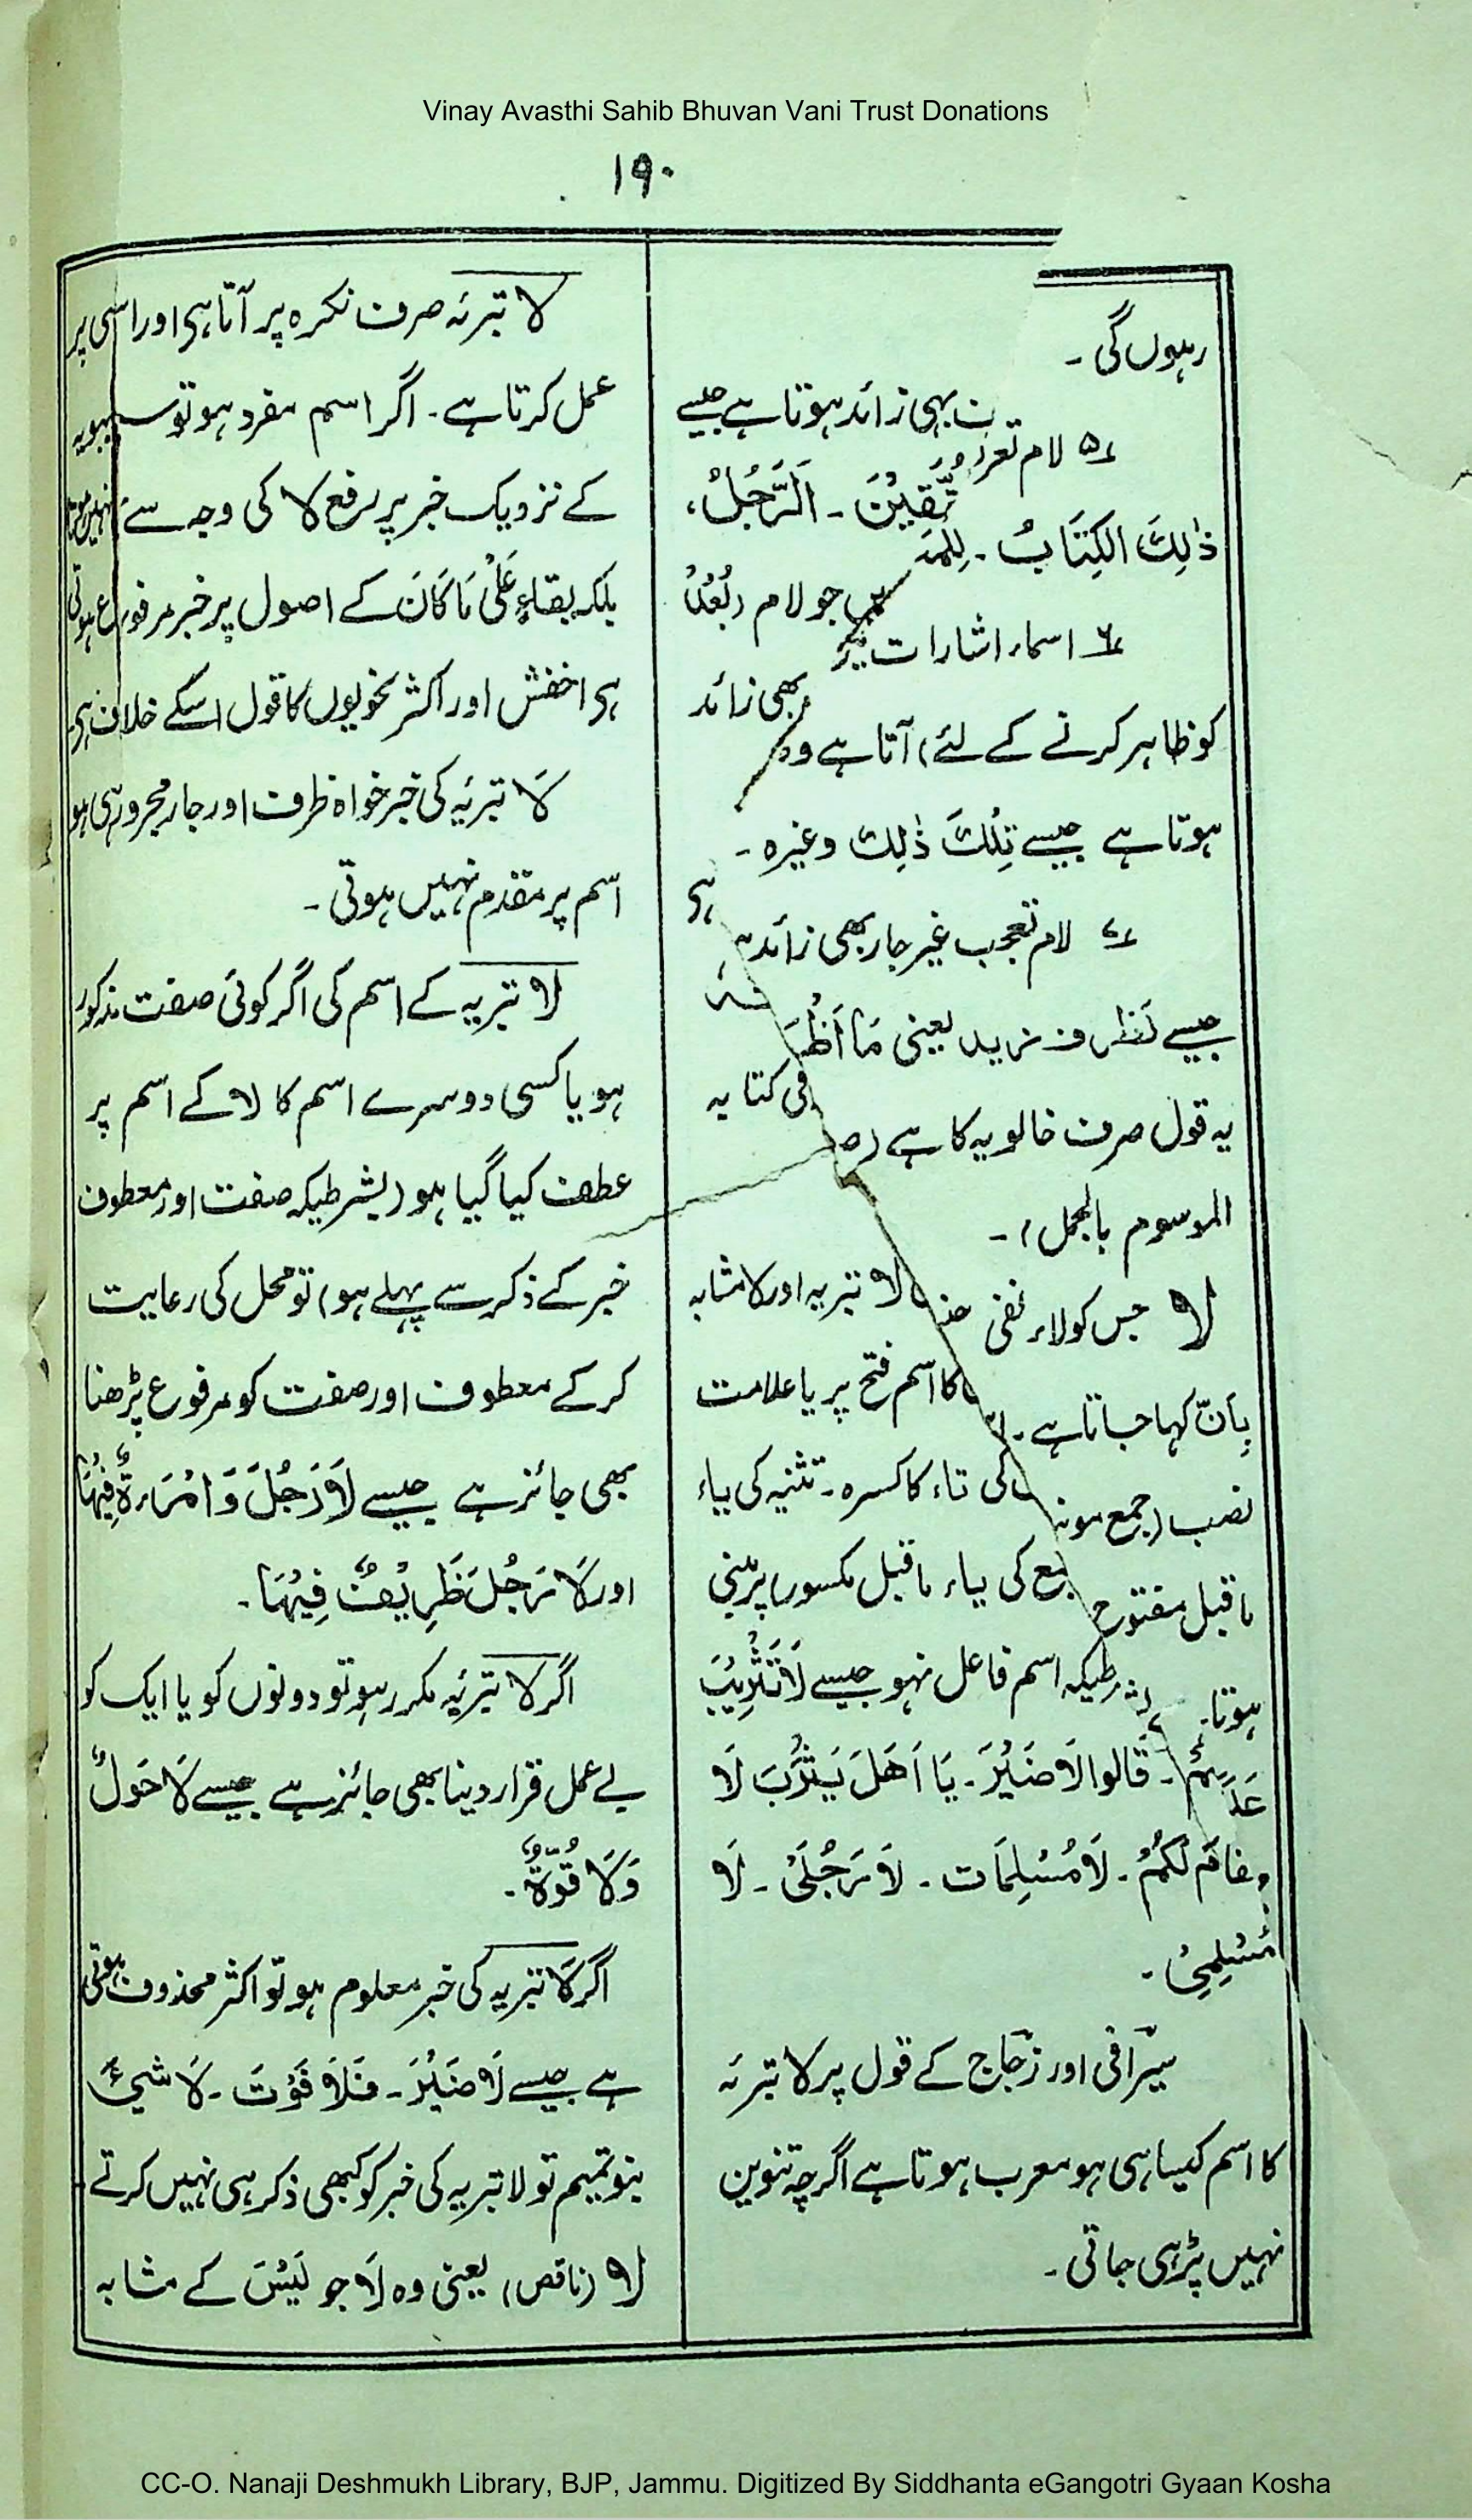 Vinay Avasthi Sahib Bhuvan Vani Trust Donations
۱۹۰
رہوں گی۔
۵ لام تعر ت بہی زائد ہوتا ہے جیسے
ذٰلِكَ الكِتَابُ۔ لِلْمُتَّقِيْنَ۔ اَلرَّجُلُ،
۶ اسماء اشارات میں جو لام (بُعْد
کو ظاہر کرنے کے لئے) آتا ہے وہ بھی زائد
ہوتا ہے جیسے تِلْكَ ذٰلِكَ وغیرہ۔
۷ لام تعجب غیر جار بھی زائد ہی
جیسے لَظرف زید یعنی مَا اَظْرَفَ
یہ قول صرف خالویہ کا ہے (فی کتابہ
الموسوم بالجمل)۔
لا جس کو لاء نفی لا تبریہ اور لا مشابہ
بِاَنَّ کہا جاتا ہے۔ کا اسم فتح پر یا علامت
نصب (جمع مونث کی تاء کا کسرہ۔ تثنیہ کی یاء
ماقبل مفتوح جمع کی یاء ماقبل مکسور) پر مبنی
ہوتا۔ بشرطیکہ اسم فاعل نہو جیسے لَا تَثْرِيْبَ
عَلَيْكُمْ۔ قَالوا لَا ضَيْرَ۔ يَا اَهْلَ يَثْرِبَ لَا
مقام لَكُمْ۔ لَا مُسْلِمَات۔ لَا رَجُلَىْ۔ لَا
مُسْلِمِىْ۔
سیرافی اور زجاج کے قول پر لا تبرئہ
کا اسم کیسا ہی ہو معرب ہوتا ہے اگرچہ تنوین
نہیں پڑہی جاتی۔
لا تبرئہ صرف نکرہ پر آتا ہی اور اسی پر
عمل کرتا ہے۔ اگر اسم مفرد ہو تو سیبویہ
کے نزدیک خبر پر رفع لا کی وجہ سے نہیں ہوتا
بلکہ بقاءِ عَلٰى مَا كَانَ کے اصول پر خبر مرفوع ہوتی
ہی اخفش اور اکثر نحویوں کا قول اسکے خلاف ہی۔
لَا تبرئیہ کی خبر خواہ ظرف اور جار مجرور ہی ہو
اسم پر مقدم نہیں ہوتی۔
لا تبریہ کے اسم کی اگر کوئی صفت مذکور
ہو یا کسی دوسرے اسم کا لا کے اسم پر
عطف کیا گیا ہو (بشرطیکہ صفت اور معطوف
خبر کے ذکر سے پہلے ہو) تو محل کی رعایت
کر کے معطوف اور صفت کو مرفوع پڑھنا
بھی جائز ہے جیسے لَا رَجُلَ وَ امْرَءَةٌ فِيْهَا
اور لَا رَجُلَ ظَرِيْفٌ فِيْهَا۔
اگر لا تبرئیہ مکرر ہو تو دونوں کو یا ایک کو
بے عمل قرار دینا بھی جائز ہے جیسے لَا حَوْلٌ
وَلَا قُوَّةٌ۔
اگر لَا تبریہ کی خبر معلوم ہو تو اکثر محذوف ہوتی
ہے جیسے لَا ضَيْرَ۔ فَلَا فَوْتَ۔ لَا شَيءٌ
بنو تمیم تو لا تبریہ کی خبر کو کبھی ذکر ہی نہیں کرتے
لا (ناقص) یعنی وہ لَا جو لَيْسَ کے مشابہ
CC-O. Nanaji Deshmukh Library, BJP, Jammu. Digitized By Siddhanta eGangotri Gyaan Kosha